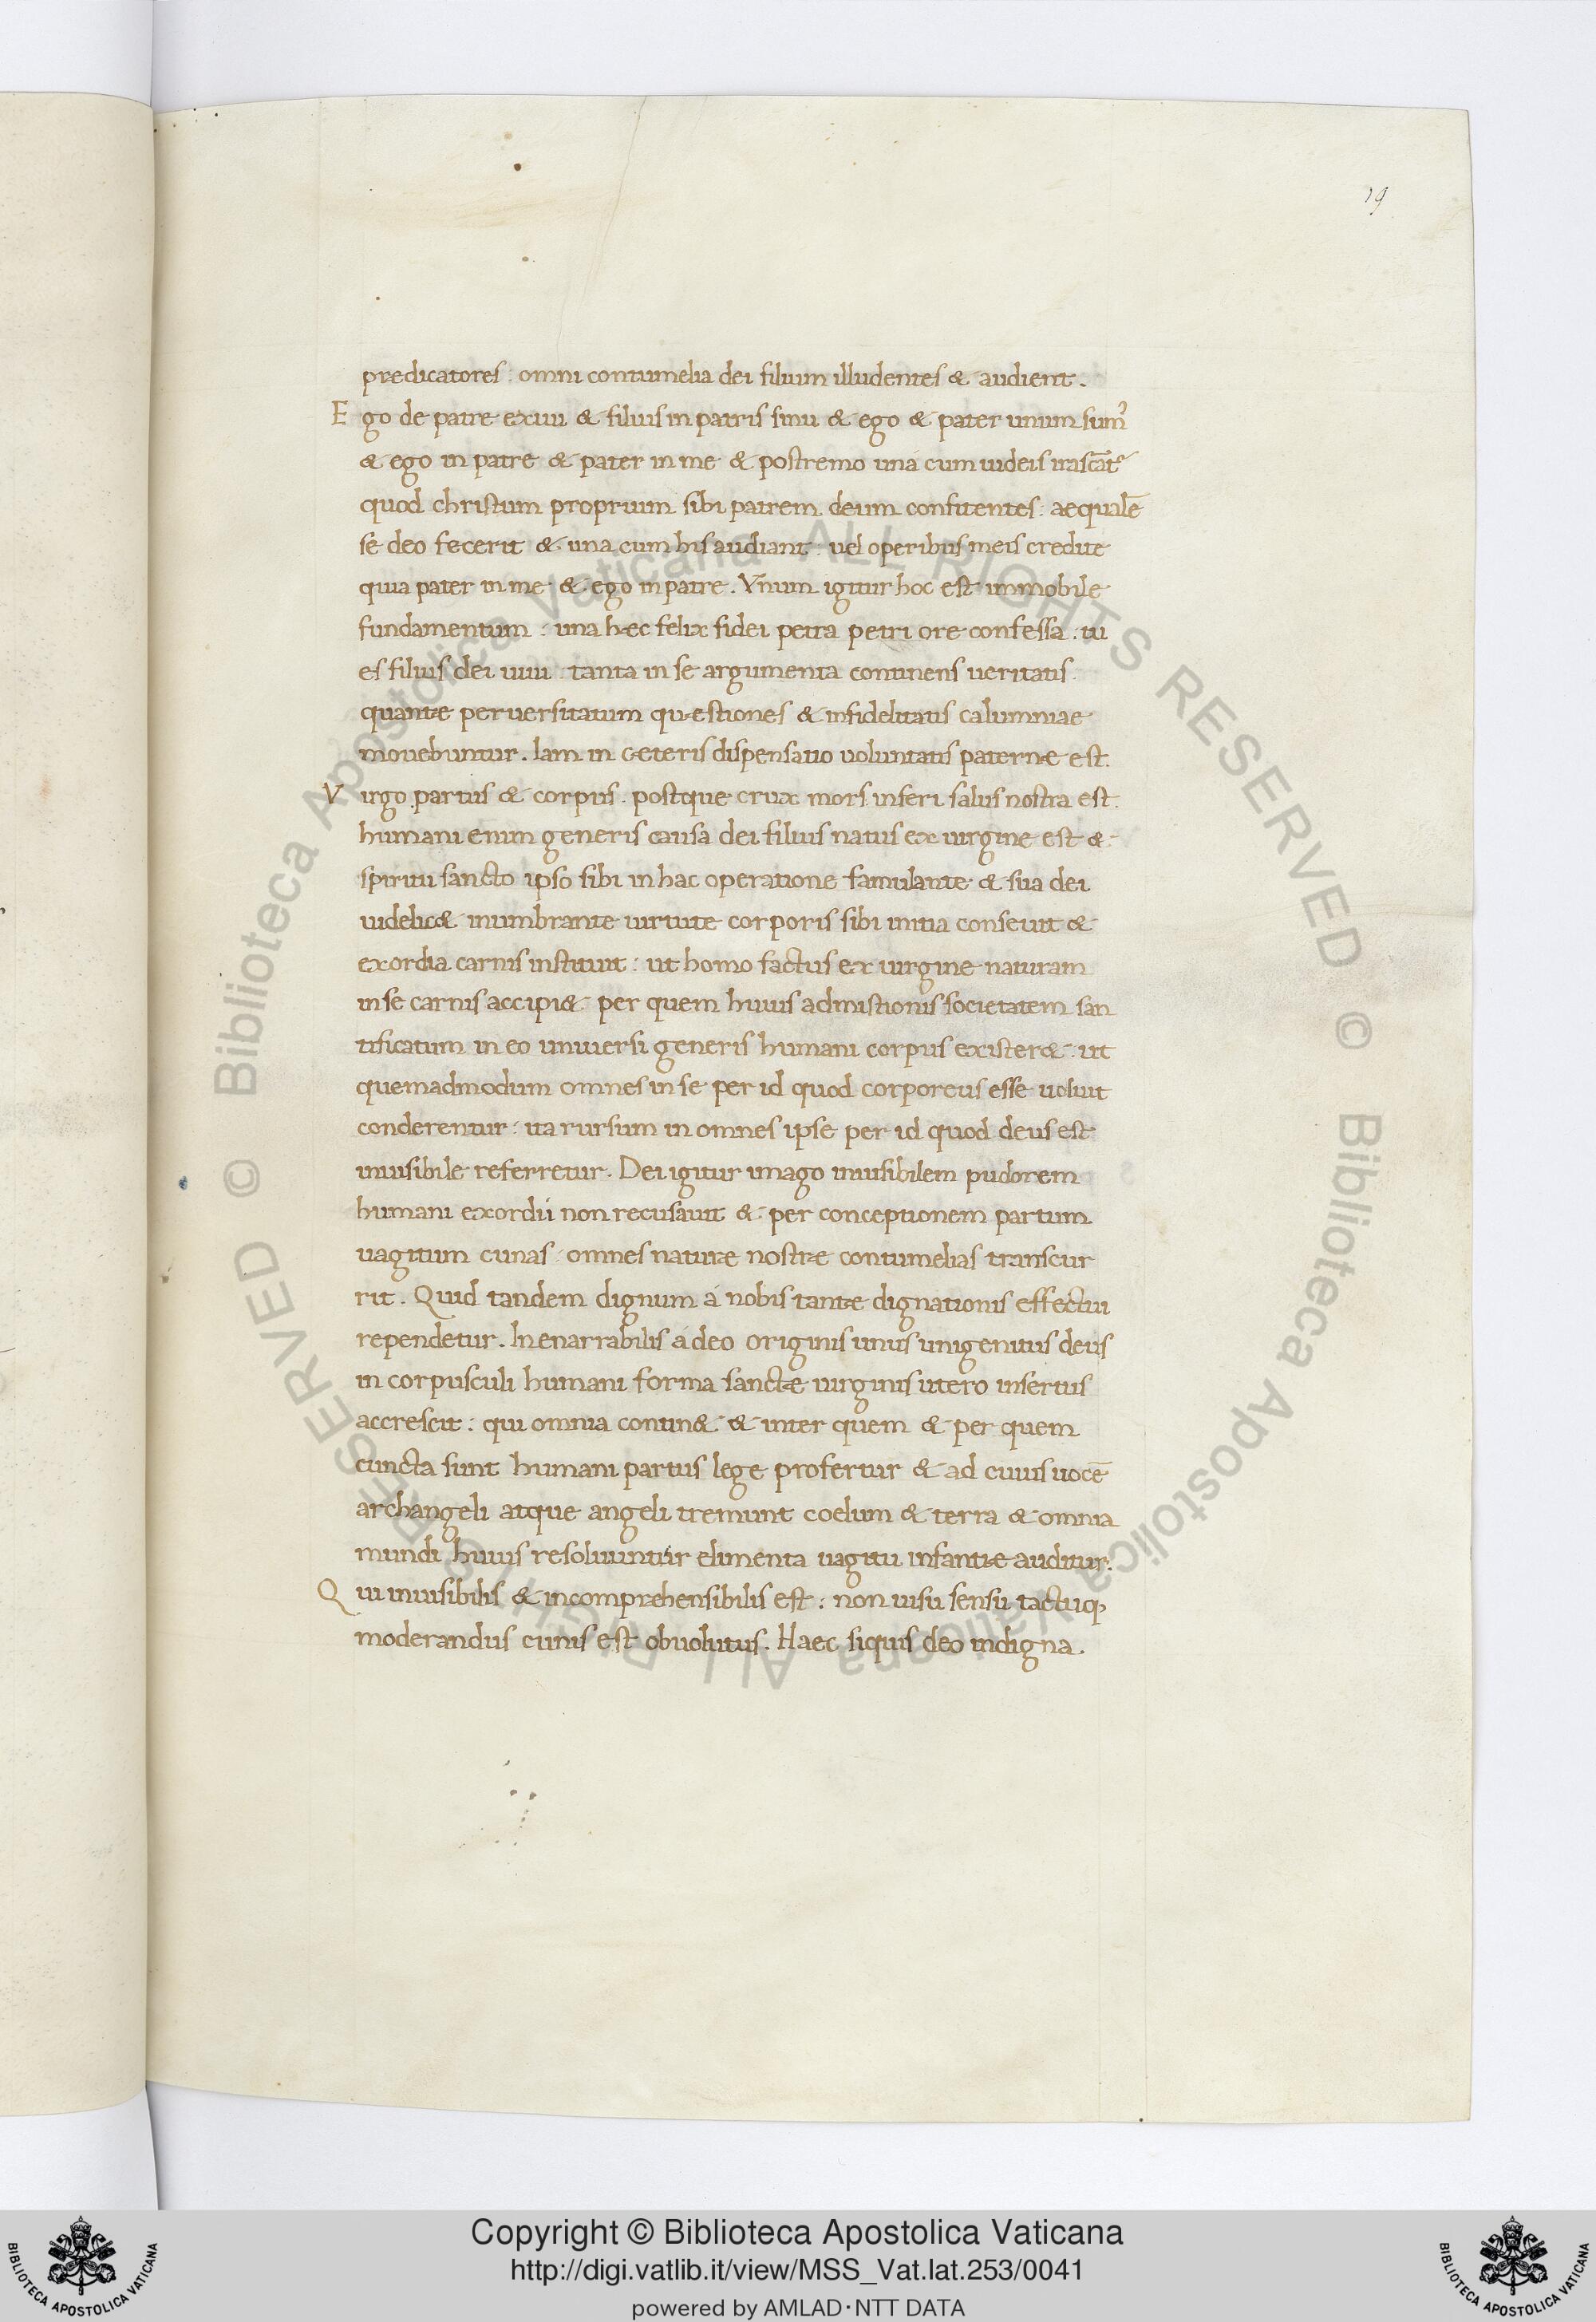 19
predicatores : omni contumelia dei filium illudentes & audient.
Ego de patre exiui & filius in patris sinu & ego & pater unum sumꝰ
& ego in patre & pater in me & postremo una cum iudeis irascāt᷑
quod christum proprium sibi patrem deum confitentes : aequalē
se deo fecerit & una cum his audiant : uel operibus meis credite
quia pater in me & ego in patre. Vnum igitur hoc est immobile
fundamentum : una hęc felix fidei petra petri ore confessa : tu
es filius dei uiui : tanta in se argumenta continens ueritatis
quantę peruersitatum quęstiones & infidelitatis calumniae
mouebuntur. Iam in cęteris dispensatio uoluntatis paternę est.
Virgo partus & corpus. postque crux mors inferi salus nostra est.
humani enim generis causa dei filius natus ex uirgine est &
spiritu sancto ipso sibi in hac operatione famulante & sua dei
uidelic& inumbrante uirtute corporis sibi initia conseuit &
exordia carnis instituit : ut homo factus ex uirgine naturam
in se carnis accipi& per quem huius admistionis societatem san
tificatum in eo uniuersi generis humani corpus exister& : ut
quemadmodum omnes in se per id quod corporeus esse uoluit
conderentur : ita rursum in omnes ipse per id quod deus est
inuisibile referretur. Dei igitur imago inuisibilem pudorem
humani exordii non recusauit & per conceptionem partum
uagitum cunas : omnes naturę nostrę contumelias transcur
rit. Quid tandem dignum á nobis tantę dignationis effectui
rependetur. Inenarrabilis á deo originis unus unigenitus deus
in corpusculi humani forma sanctę uirginis utero insertus
accrescit : qui omnia contin& & inter quem & per quem
cuncta sunt humani partus lege profertur & ad cuius uocē
archangeli atque angeli tremunt coelum & terra & omnia
mundi huius resoluuntur elimenta uagitu infantię auditur.
Qui inuisibilis & incomprehensibilis est : non uisu sensu tactuqꝫ
moderandus cunis est obuolutus. Haec siquis deo indigna
© Biblioteca Apostolica Vaticana ALL RIGHTS RESERVED © Biblioteca Apostolica Vaticana ALL RIGHTS RESERVED
BIBLIOTECA APOSTOLICA VATICANA
Copyright © Biblioteca Apostolica Vaticana
http://digi.vatlib.it/view/MSS_Vat.lat.253/0041
powered by AMLAD·NTT DATA
BIBLIOTECA APOSTOLICA VATICANA